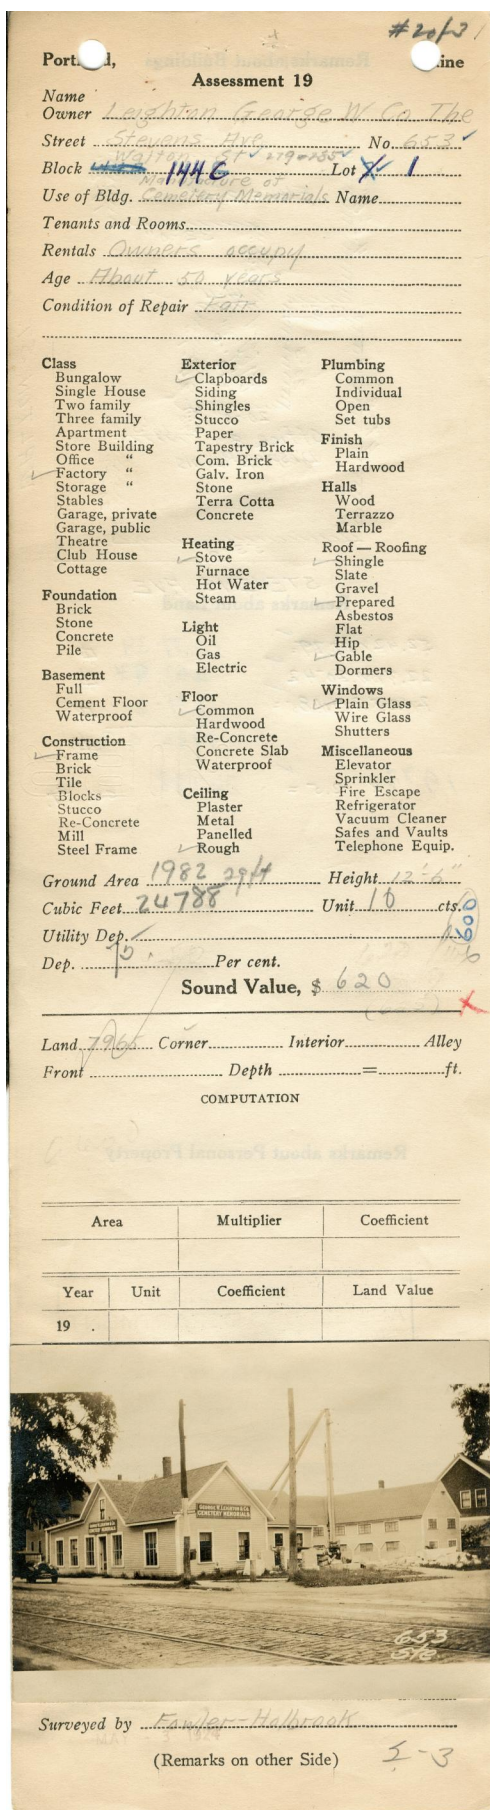 # 2 of 3
Portland, Maine
Assessment 19
Name
Owner Leighton George W Co The
Street Stevens Ave No. 653
Walton St 279-285
Block 144 C Lot 1
Manufacture of
Use of Bldg. Cemetery Memorials Name
Tenants and Rooms
Rentals Owners occupy
Age About 50 years
Condition of Repair Fair
Class
Bungalow
Single House
Two family
Three family
Apartment
Store Building
Office "
✓ Factory "
Storage "
Stables
Garage, private
Garage, public
Theatre
Club House
Cottage
Foundation
Brick
Stone
Concrete
Pile
Basement
Full
Cement Floor
Waterproof
Construction
✓ Frame
Brick
Tile
Blocks
Stucco
Re-Concrete
Mill
Steel Frame
Exterior
✓ Clapboards
Siding
Shingles
Stucco
Paper
Tapestry Brick
Com. Brick
Galv. Iron
Stone
Terra Cotta
Concrete
Heating
✓ Stove
Furnace
Hot Water
Steam
Light
Oil
Gas
Electric
Floor
✓ Common
Hardwood
Re-Concrete
Concrete Slab
Waterproof
Ceiling
Plaster
Metal
Panelled
✓ Rough
Plumbing
Common
Individual
Open
Set tubs
Finish
Plain
Hardwood
Halls
Wood
Terrazzo
Marble
Roof — Roofing
✓ Shingle
Slate
Gravel
✓ Prepared
Asbestos
Flat
Hip
✓ Gable
Dormers
Windows
✓ Plain Glass
Wire Glass
Shutters
Miscellaneous
Elevator
Sprinkler
Fire Escape
Refrigerator
Vacuum Cleaner
Safes and Vaults
Telephone Equip.
Ground Area 1982 sq ft Height 12'-6"
Cubic Feet 24788 Unit 10 cts.
600
Utility Dep.
Dep. 75 Per cent.
Sound Value, $ 620
Land 7965 Corner Interior Alley
Front Depth = ft.
COMPUTATION
Area Multiplier Coefficient
Year Unit Coefficient Land Value
19 .
GEORGE W. LEIGHTON & CO.
CEMETERY MEMORIALS
653
Ste
Surveyed by Fowler-Holbrook
(Remarks on other Side)